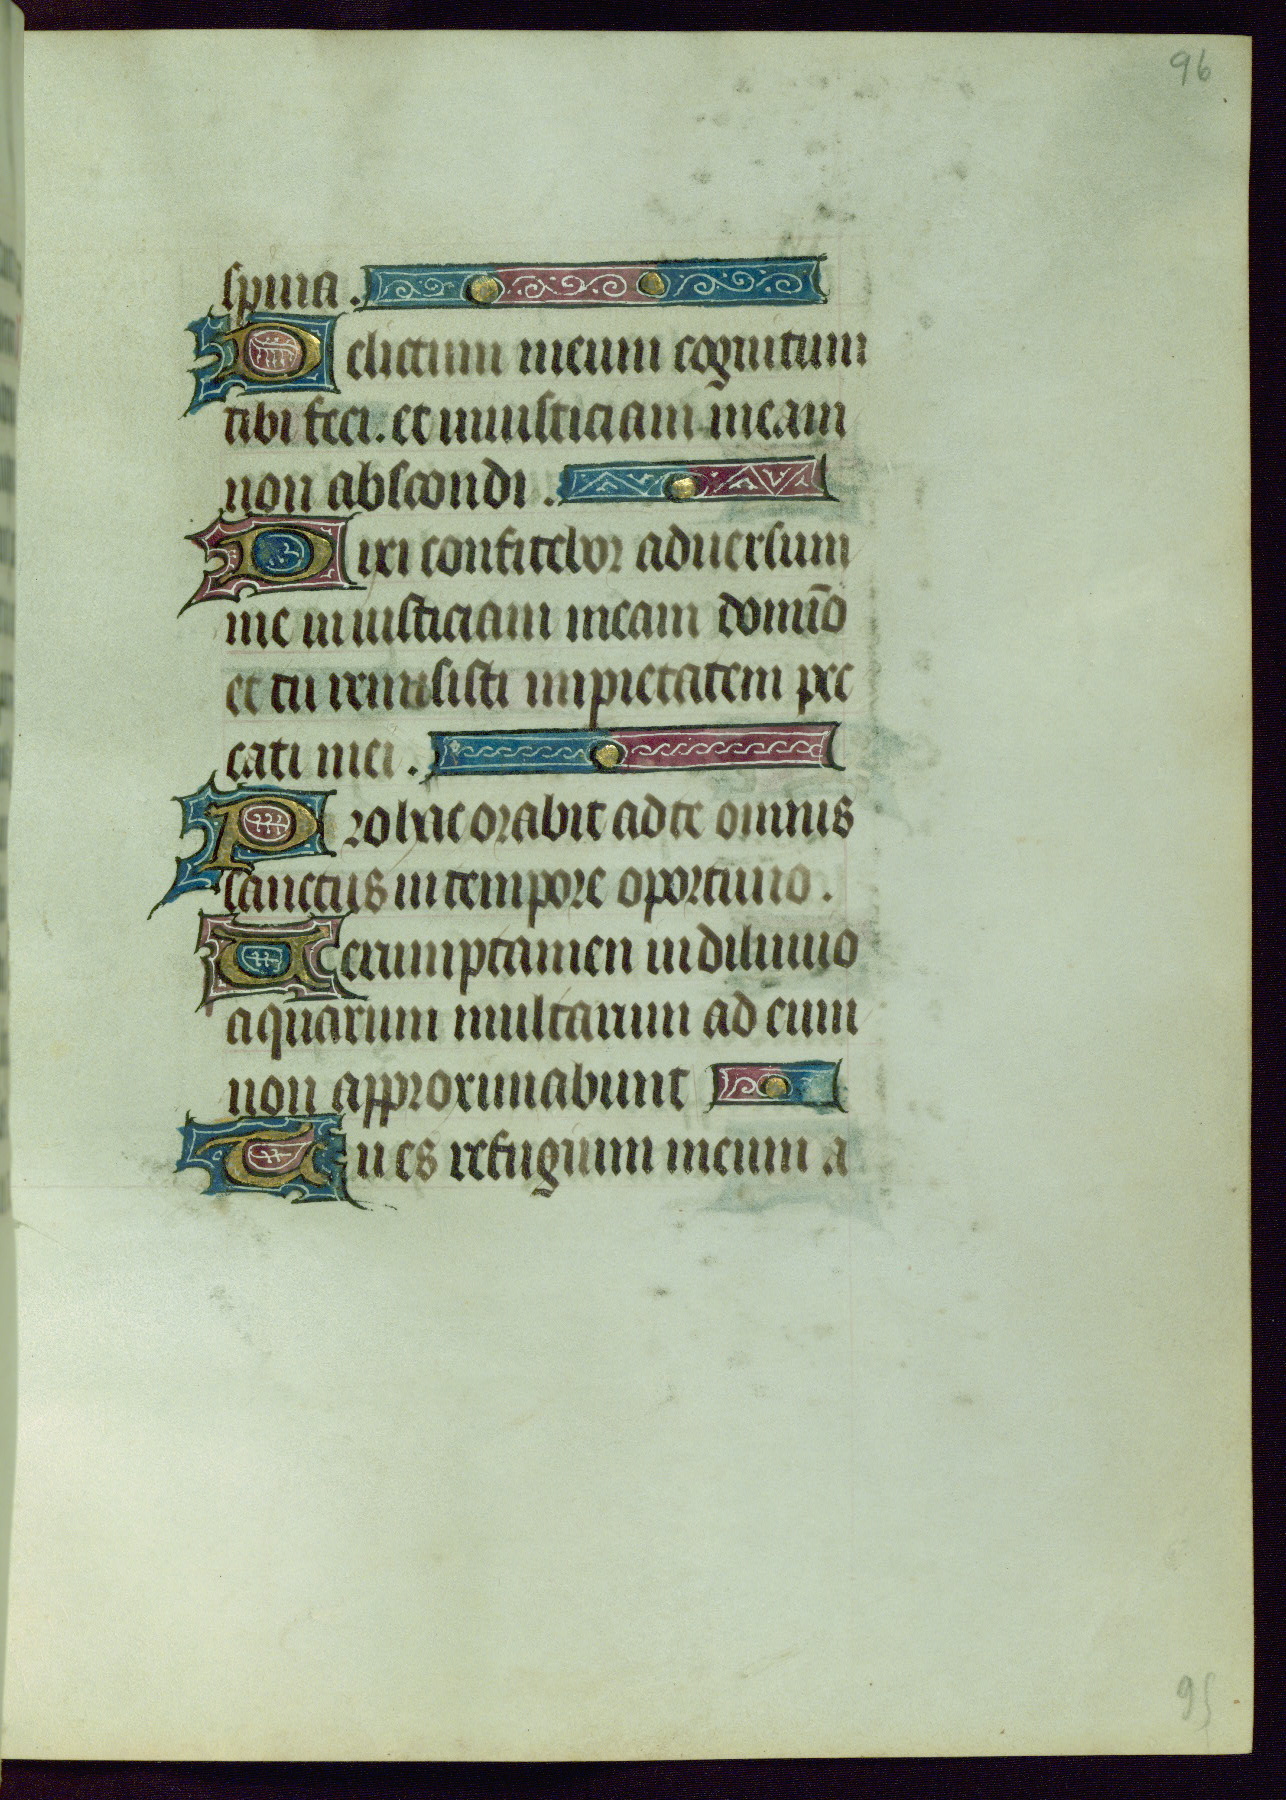 96
spina.
Delictum meum cognitum
tibi feci. et iniusticiam meam
non abscondi.
Dixi confitebor adversum
me iniusticiam meam domīo
et tu remisisti impietatem pec
cati mei.
Pro hac orabit ad te omnis
sanctus in tempore oportuno.
Uerumptamen in diluuio
aquarum multarum ad eum
non approximabunt
Tu es refugium meum a
95